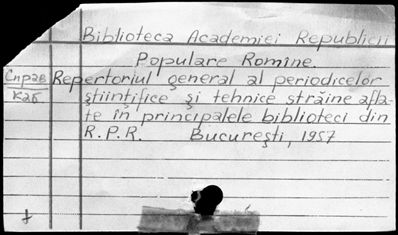 Biblioteca Academiei Republicii
Populare Romîne.
Справ
каб
Repertoriul general al periodicelor
ştiinţifice şi tehnice străine afla-
te în principalele biblioteci din
R.P.R. Bucureşti, 1957